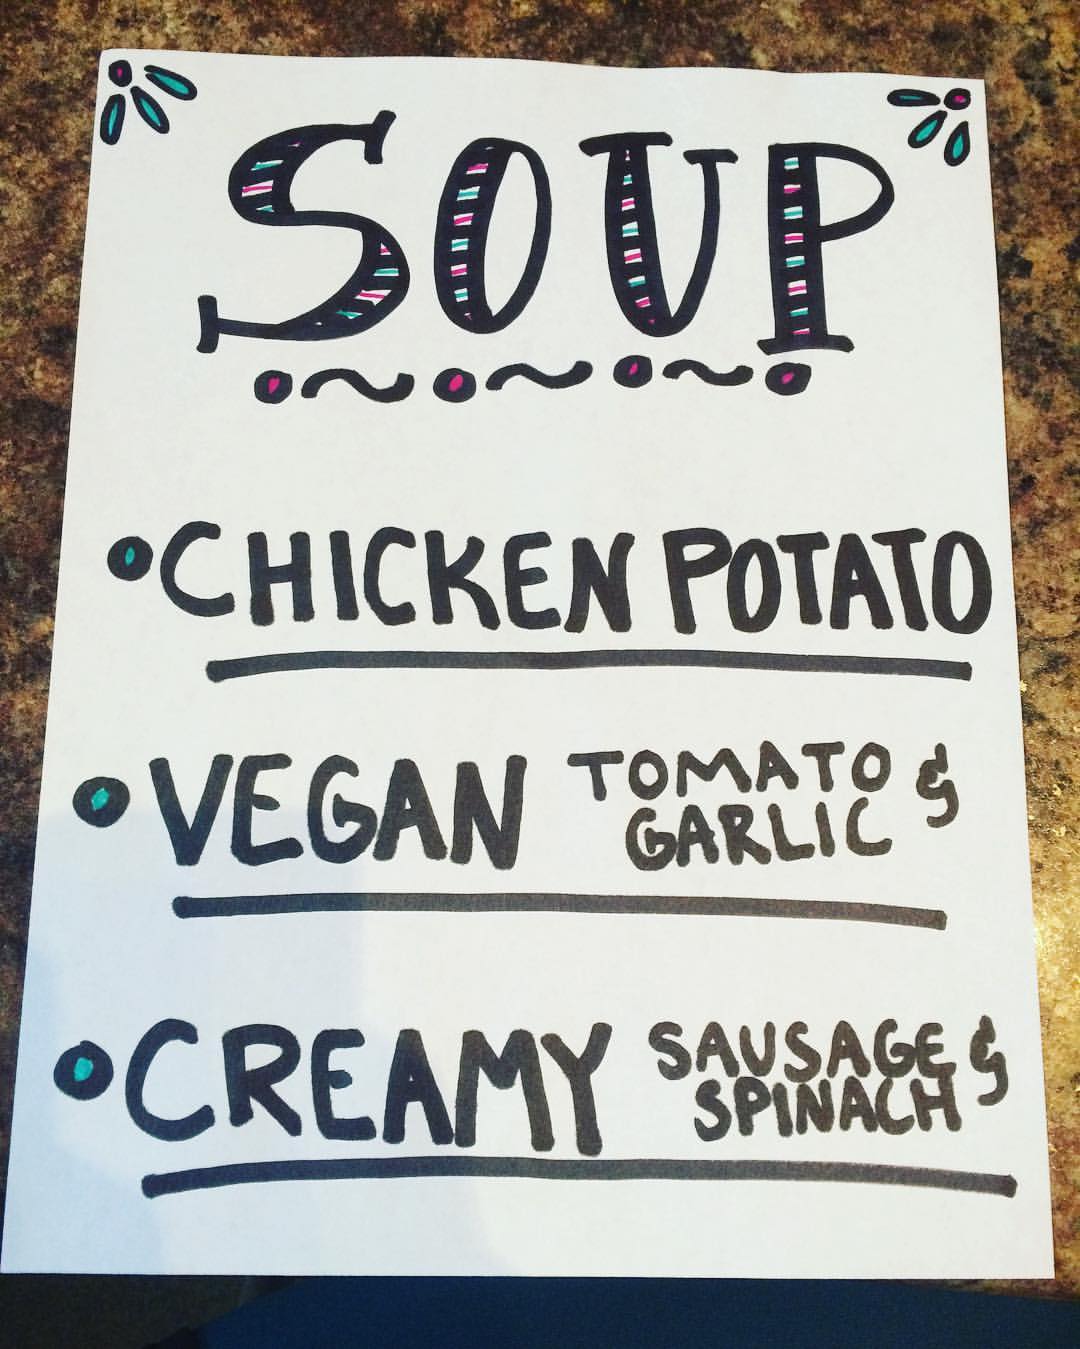 SOUP
CHICKEN POTATO
VEGAN TOMATO &
GARLIC
CREAMY SAUSAGE &
SPINACH